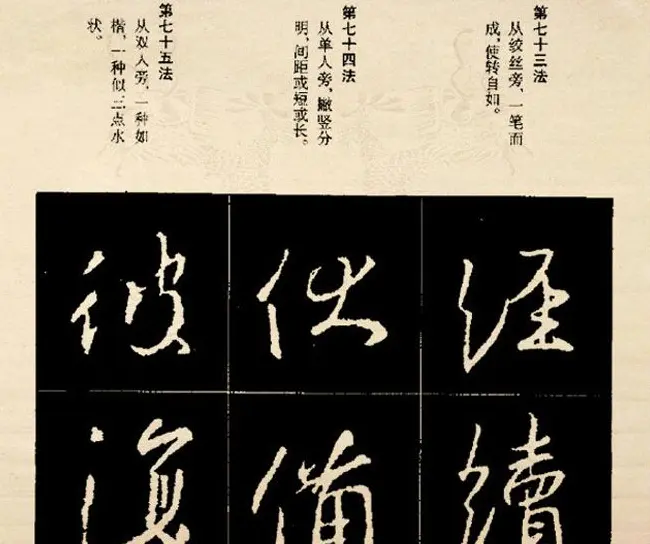 第七十三法
从绞丝旁，一笔而
成，使转自如。
經
續
第七十四法
从单人旁，撇竖分
明，间距或短或长。
伏
備
第七十五法
从双人旁，一种如
楷，一种似三点水
状。
彼
復